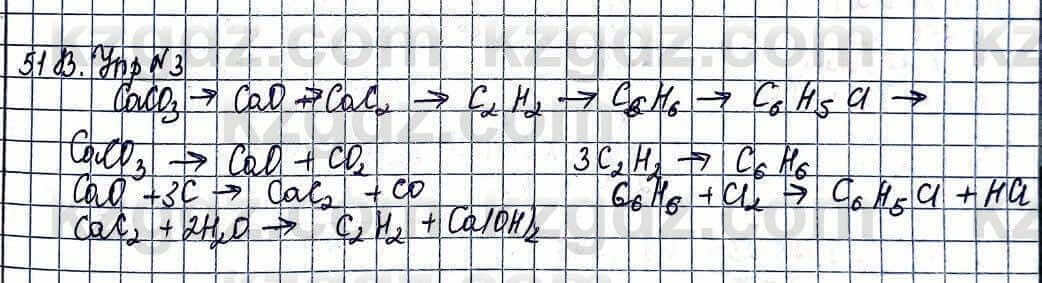 51 В. Упр №3
CaCO₃ → CaO → CaC₂ → C₂H₂ → C₆H₆ → C₆H₅Cl →
CaCO₃ → CaO + CO₂
3C₂H₂ → C₆H₆
CaO + 3C → CaC₂ + CO
C₆H₆ + Cl₂ → C₆H₅Cl + HCl
CaC₂ + 2H₂O → C₂H₂ + Ca(OH)₂
kzgdz.com